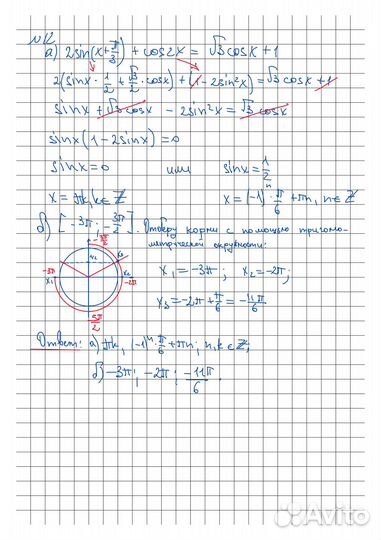 №12
а) 2sin(x+π/3) + cos2x = √3 cosx + 1
2(sinx · 1/2 + √3/2 · cosx) + (1 - 2sin²x) = √3 cosx + 1
sinx + √3 cosx - 2sin²x = √3 cosx
sinx(1 - 2sinx) = 0
sinx = 0 или sinx = 1/2
x = πk, k∈Z x = (-1)ⁿ · π/6 + πn, n∈Z
б) [-3π; -3π/2]. Отберу корни с помощью тригоно-
метрической окружности:
-3π/2
-3π x₁ x₃ x₂ -2π
x₁ = -3π; x₂ = -2π;
x₃ = -2π + π/6 = -11π/6
-5π/2
Ответ: а) πk, (-1)ⁿ · π/6 + πn; n,k∈Z;
б) -3π; -2π; -11π/6.
Avito